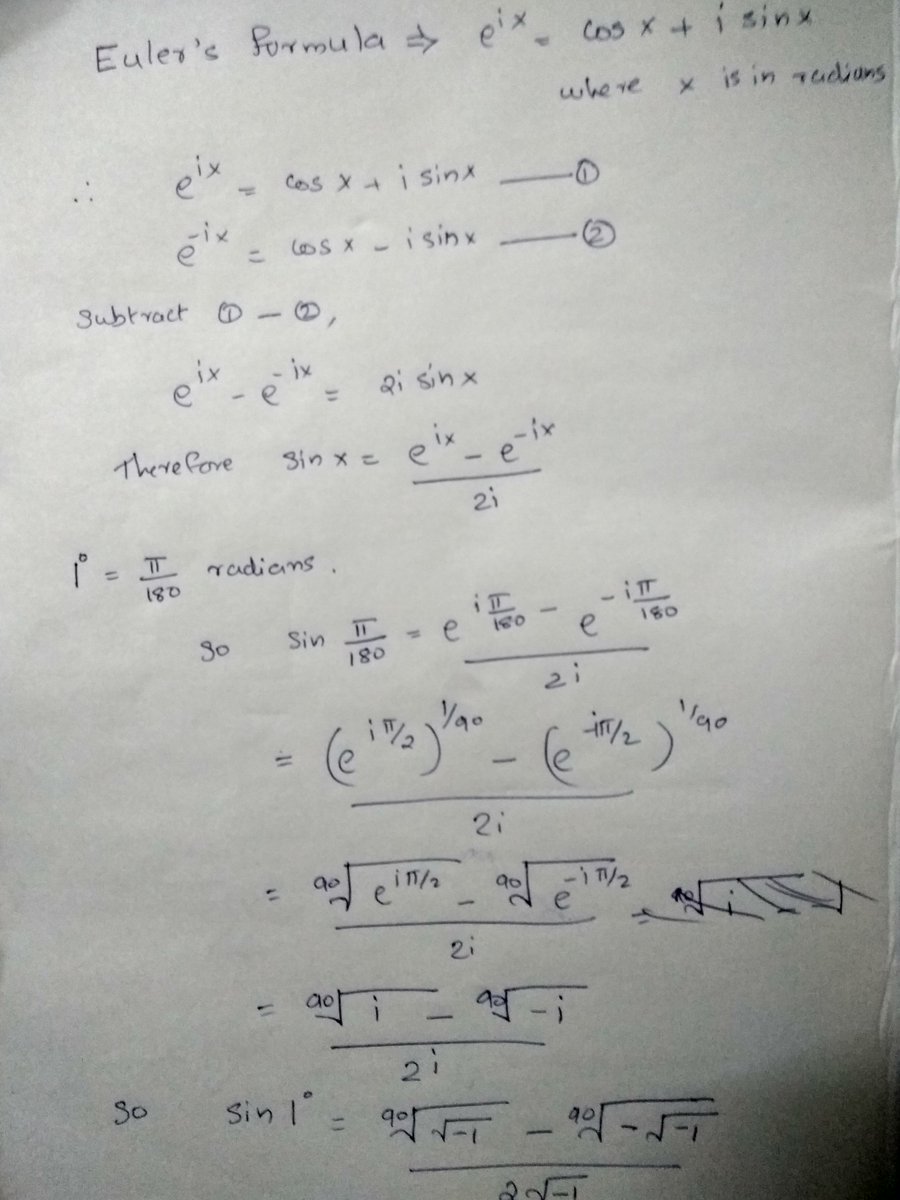 Euler's formula ⇒ e^{ix} = cos x + i sin x
where x is in radians
∴ e^{ix} = cos x + i sin x —— ①
e^{-ix} = cos x - i sin x —— ②
Subtract ① - ②,
e^{ix} - e^{-ix} = 2i sin x
Therefore sin x = (e^{ix} - e^{-ix}) / 2i
1° = π/180 radians.
So sin π/180 = (e^{iπ/180} - e^{-iπ/180}) / 2i
= ((e^{iπ/2})^{1/90} - (e^{-iπ/2})^{1/90}) / 2i
= (⁹⁰√(e^{iπ/2}) - ⁹⁰√(e^{-iπ/2})) / 2i
= (⁹⁰√i - ⁹⁰√-i) / 2i
So sin 1° = (⁹⁰√(√-1) - ⁹⁰√(-√-1)) / 2√-1